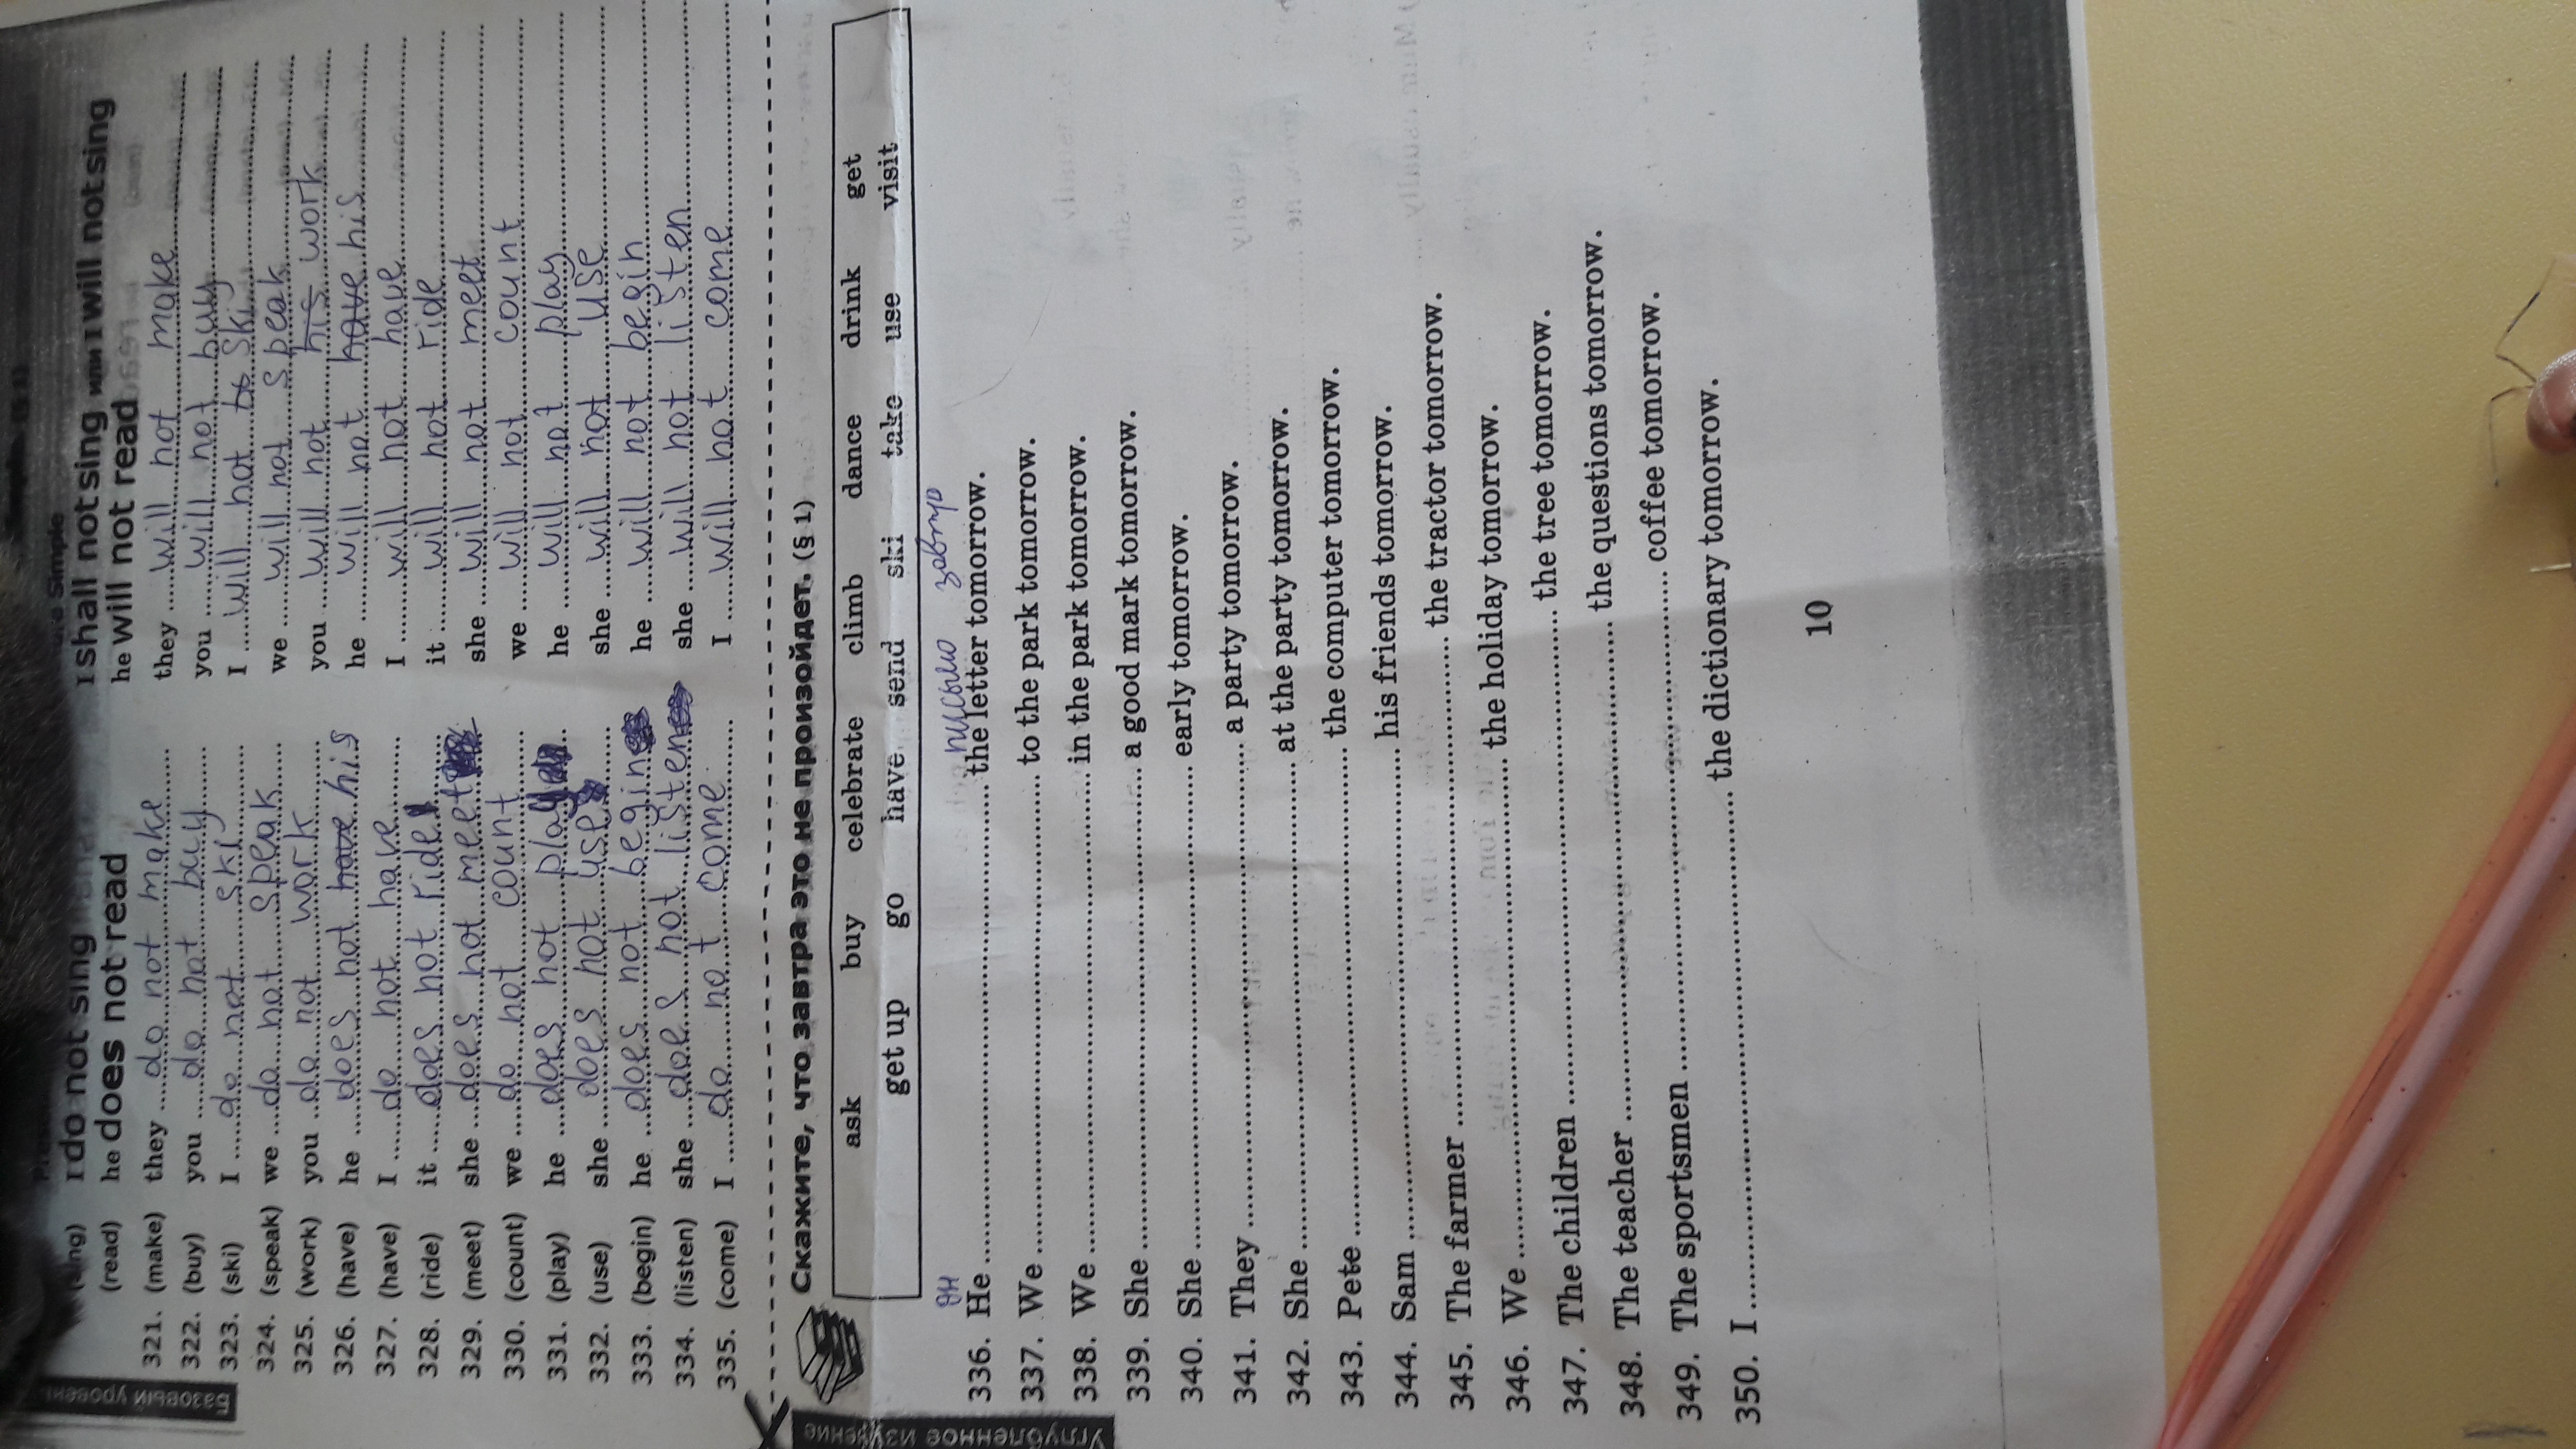 I do not sing I shall not sing или I will not sing
(read) he does not read he will not read
321. (make) they do not make they will not make
322. (buy) you do not buy you will not buy
323. (ski) I do not ski I will not to ski
324. (speak) we do not speak we will not speak
325. (work) you do not work you will not his work
326. (have) he does not have his he will not have his
327. (have) I do not have I will not have
328. (ride) it does not ride it will not ride
329. (meet) she does not meet she will not meet
330. (count) we do not count we will not count
331. (play) he does not play he will not play
332. (use) she does not use she will not use
333. (begin) he does not begin he will not begin
334. (listen) she does not listen she will not listen
335. (come) I do not come I will not come
Углубленное изучение
Скажите, что завтра это не произойдет. (§ 1)
ask buy celebrate climb dance drink get
get up go have send ski take use visit
он письмо завтр
336. He the letter tomorrow.
337. We to the park tomorrow.
338. We in the park tomorrow.
339. She a good mark tomorrow.
340. She early tomorrow.
341. They a party tomorrow.
342. She at the party tomorrow.
343. Pete the computer tomorrow.
344. Sam his friends tomorrow.
345. The farmer the tractor tomorrow.
346. We the holiday tomorrow.
347. The children the tree tomorrow.
348. The teacher the questions tomorrow.
349. The sportsmen coffee tomorrow.
350. I the dictionary tomorrow.
10